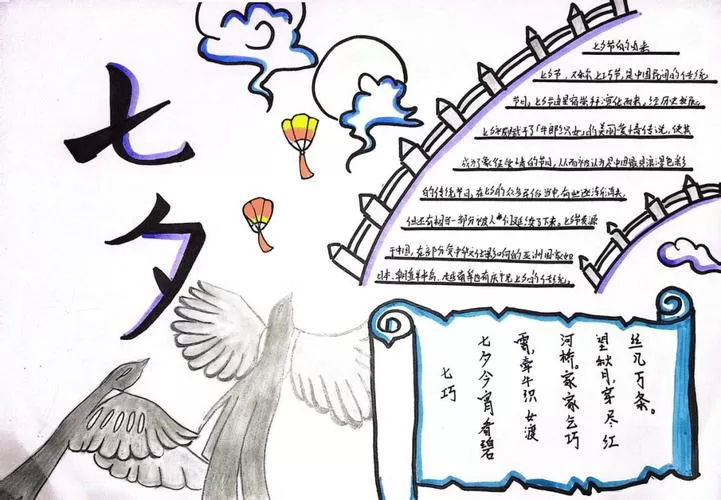 七夕
七夕节的由来
七夕节,又称乞巧节,是中国民间的传统
节日。七夕节由星宿崇拜演化而来,经历史发展,
七夕被赋予了「牛郎织女」的美丽爱情传说,使其
成为了象征爱情的节日,从而被认为是中国最具浪漫色彩
的传统节日,在七夕的众多民俗当中,有些逐渐消失,
但还有相当一部分被人们延续了下来。七夕发源
于中国,在部分受中华文化影响的亚洲国家如
日本、朝鲜半岛、越南等也有庆祝七夕的传统。
七巧
七夕今宵看碧
霄,牵牛织女渡
河桥。家家乞巧
望秋月,穿尽红
丝几万条。